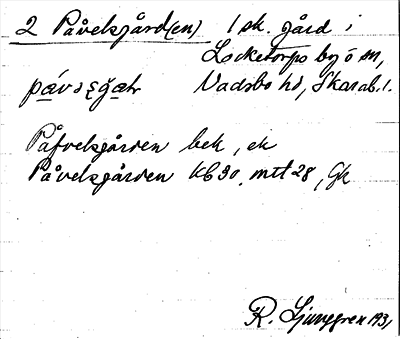 2 Påvelsgård(en) 1 sk. gård i
Locketorps by o sn,
Vadsbo hd, Skarab. l.
Påfvelsgården bek, ek
Påvelsgården KB 30, mtl 28, Gk
R. Ljunggren 1931